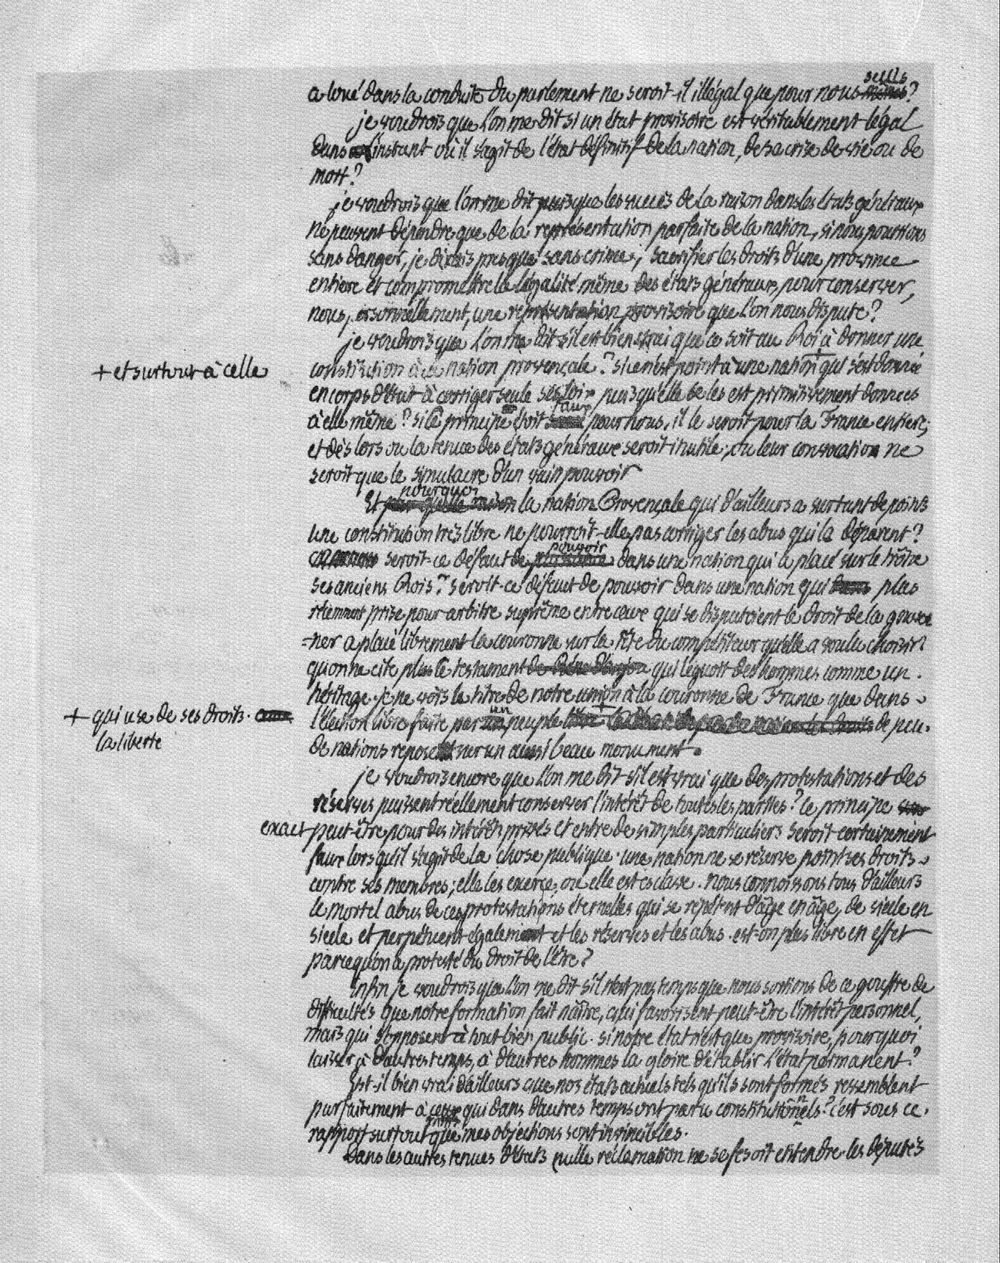 a loué dans la conduite du parlement ne seroit-il illégal que pour nous mêmes seuls?
je voudrois que l'on me dit si un état provisoire est véritablement légal
dans l'instant où il s'agit de l'état définitif de la nation, de sa crise de vie ou de
mort?
je voudrois que l'on me dit puisque les succès de la raison dans les états généraux
ne peuvent dépendre que de la représentation parfaite de la nation, si nous pourrions
sans danger, je dirois presque sans crime, sacrifier les droits d'une province
entière et compromettre la légalité même des états généraux, pour conserver,
nous, personnellement, une représentation provisoire que l'on nous dispute?
je voudrois que l'on me dit s'il est bien vrai que ce soit au Roi à donner une
+ et surtout à celle
constitution à la nation provençale? si ce n'est point à une nation + qui s'est donnée
en corps d'état à corriger seule ses loix puisqu'elle les est primitivement données
à elle même? si ce principe étoit faux pour nous, il le seroit pour la France entière;
et dès lors ou la tenue des états généraux seroit inutile, ou leur convocation ne
seroit que le simulacre d'un vain pouvoir
Et par quelle raison pourquoi la nation Provençale qui d'ailleurs a surtant de points
une constitution très libre ne pourroit-elle pas corriger les abus qui la déparent?
seroit-ce défaut de puissance pouvoir dans une nation qui a placé sur le trône
ses anciens Rois? seroit-ce défaut de pouvoir dans une nation qui plus
récemment prise pour arbitre suprême entre ceux qui se disputoient le droit de la gouver
=ner a placé librement la couronne sur la tête du compétiteur qu'elle a voulu choisir?
qu'on ne cite plus le testament qui léguoit des hommes comme un
héritage. je ne vois le titre de notre union à la couronne de France que dans
+ qui use de ses droits.
la liberté
l'élection libre faite par un peuple libre + de peu
de nations repose sur un aussi beau monument.
je voudrois encore que l'on me dit s'il est vrai que des protestations et des
réserves puissent réellement conserver l'intérêt de toutes les parties? ce principe
exact peut-être pour des intérêts privés et entre de simples particuliers seroit certainement
faux lorsqu'il s'agit de la chose publique. une nation ne se réserve point ses droits
contre ses membres; elle les exerce, ou elle est esclave. nous connoissons tous d'ailleurs
le mortel abus de ces protestations éternelles qui se répètent d'âge en âge, de siecle en
siecle et perpétuent également et les réserves et les abus. est-on plus libre en effet
parcequ'on a protesté du droit de l'être?
Enfin je voudrois que l'on me dit s'il n'est pas temps que nous sortions de ce gouffre de
difficultés que notre formation fait naître, qui favorisent peut-être l'intérêt personnel,
mais qui s'opposent à tout bien public. si notre état n'est que provisoire, pourquoi
laisser à d'autres temps, à d'autres hommes la gloire d'établir l'état permanent?
Est-il bien vrai d'ailleurs que nos états actuels tels qu'ils sont formés ressemblent
parfaitement à ceux qui dans d'autres temps ont paru constitutionnels? c'est sous ce
rapport surtout que mes objections sont invincibles.
Dans les autres tenues d'états nulle réclamation ne se fesoit entendre les députés